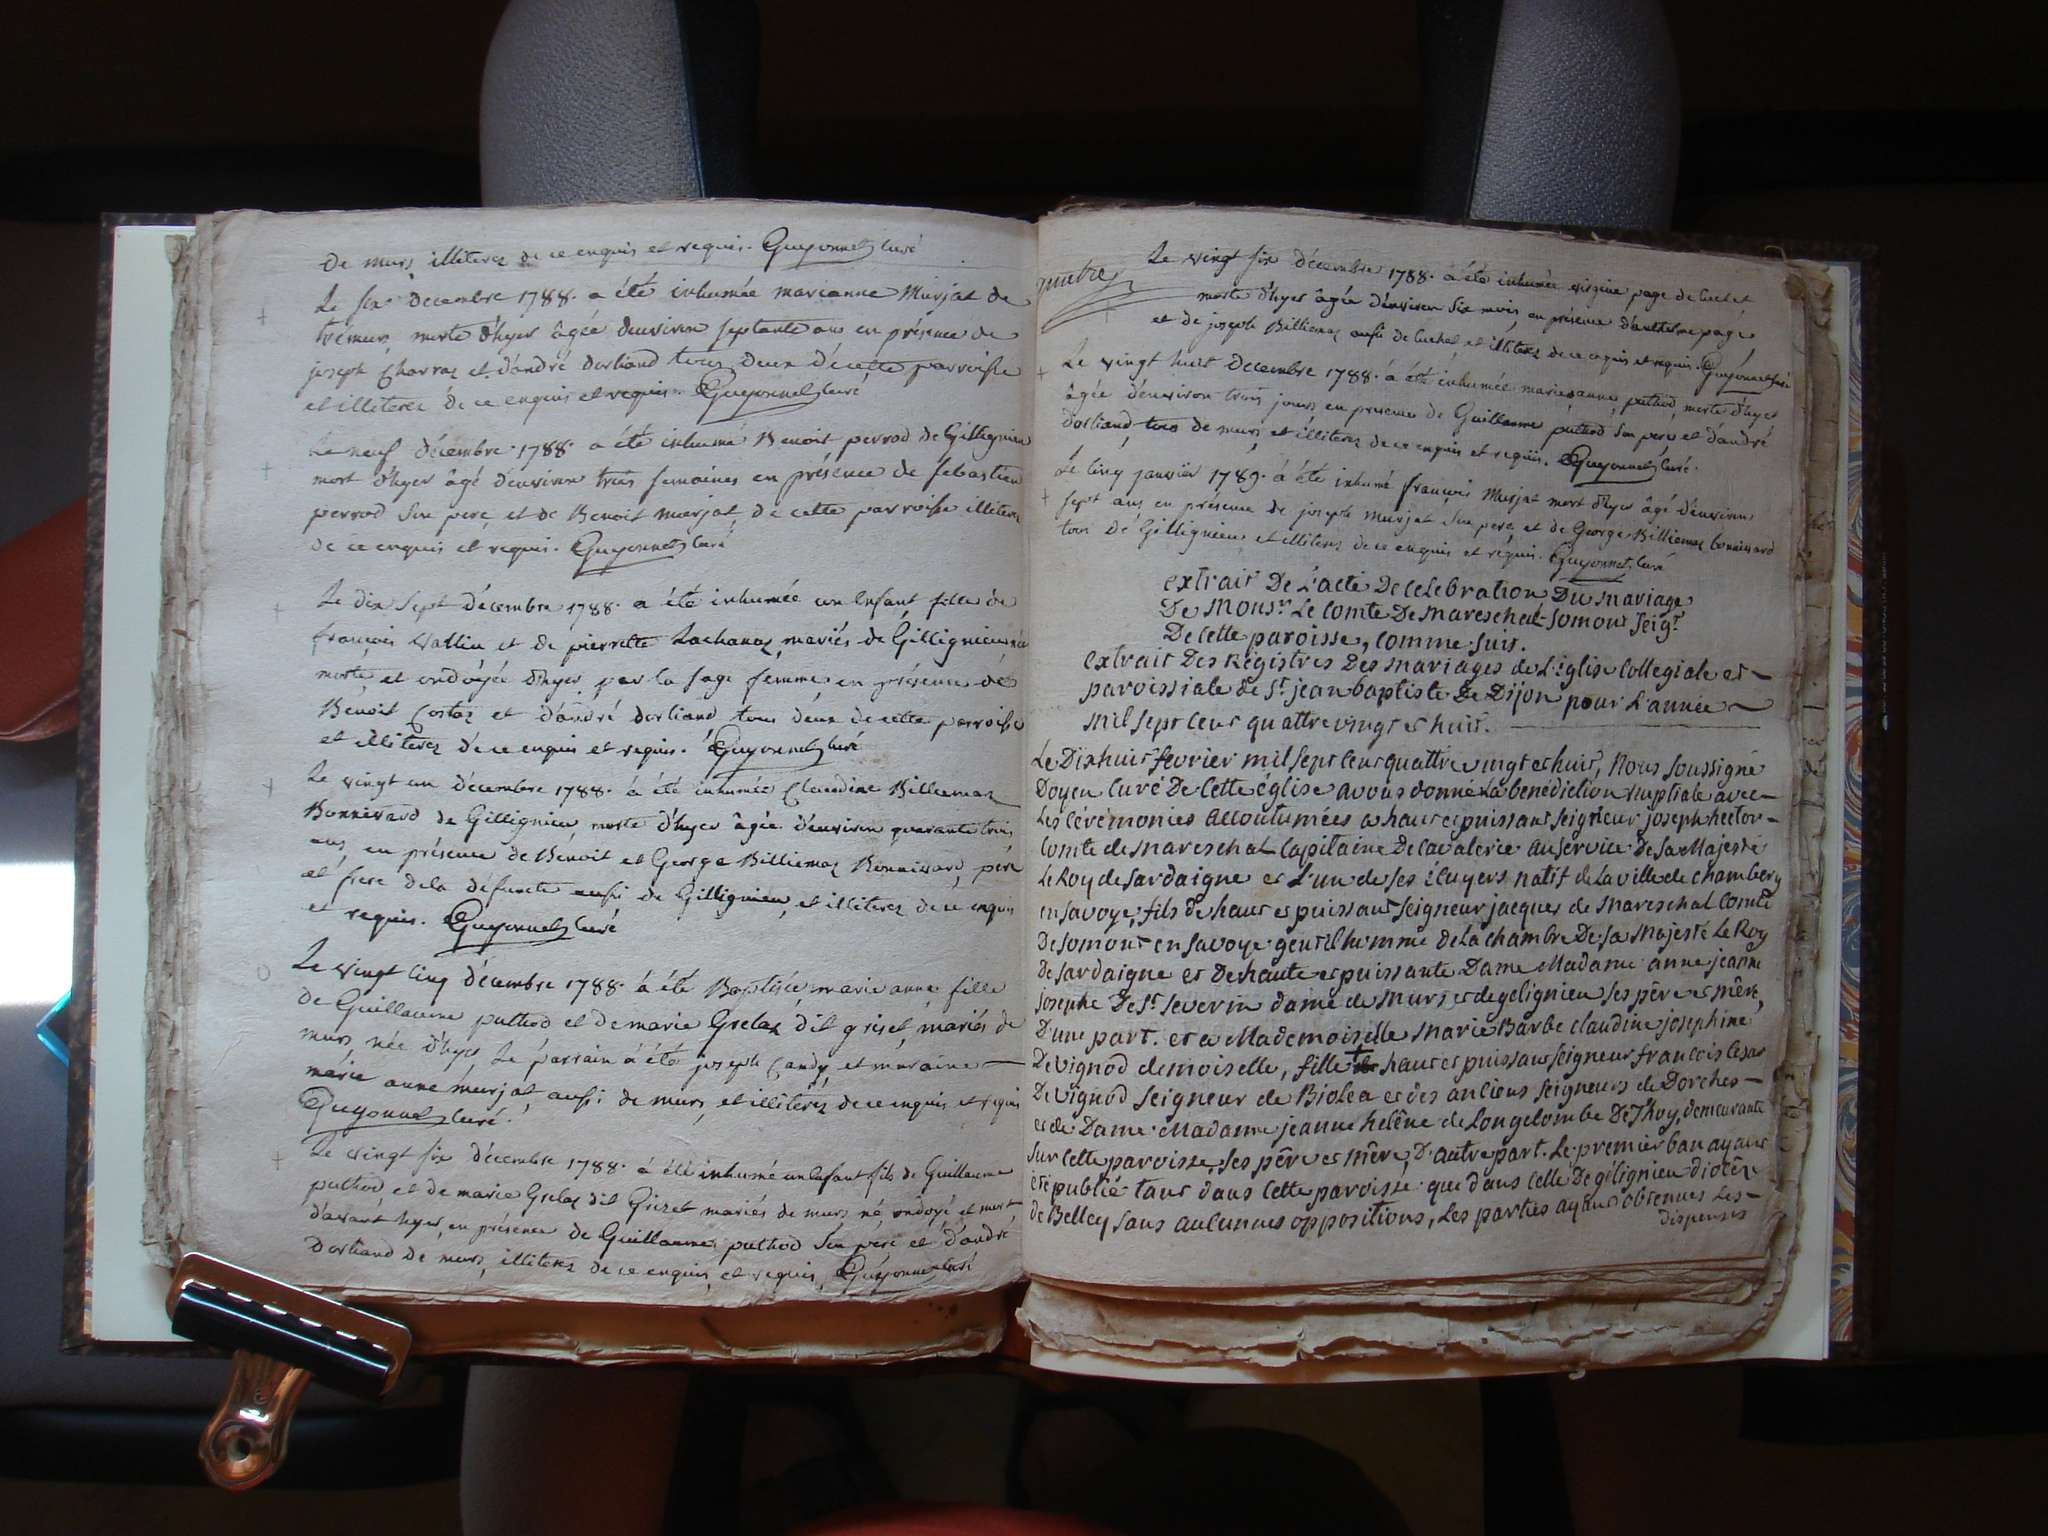 De murs illiterez de ce enquis et requis. Guyonnet curé
Le six decembre 1788. a été inhumée marianne Murjat de
tremurs morte d'hyer âgée d'environ septante ans en présence de
joseph Charraz et d'andré dortiand tous deux de cette parroisse
et illiterez de ce enquis et requis. Guyonnet curé
Le neuf décembre 1788. a été inhumé Benoit perrod de Gillignieu
mort d'hyer âgé d'environ trois semaines en présence de sebastien
perrod son pere et de Benoit murjat de cette parroisse illiterez
de ce enquis et requis. Guyonnet curé
Le dix sept décembre 1788. a été inhumée un enfant fille de
françois vallin et de pierrette Lachanaz mariés de Gillignieu née
morte et ondoyée d'hyer par la sage femme en présence de
Benoit Costaz et d'andré dortiand tous deux de cette parroisse
et illiterez de ce enquis et requis. Guyonnet curé
Le vingt un décembre 1788. a été inhumée Claudine Billiemaz
Bonnivard de Gillignieu morte d'hyer âgée d'environ quarante trois
ans en présence de Benoit et George Billiemaz Bonnivard, père
et frere de la défuncte aussi de Gillignieu, et illiterez de ce enquis
et requis. Guyonnet curé
Le vingt cinq décembre 1788. à été Baptisée marie anne fille
de Guillaume puthod et de marie Grelaz dit griset mariés de
murs née d'hyer Le parrain à été joseph Candy et maraine
marie anne murjat, aussi de murs, et illiterez de ce enquis et requis
Guyonnet curé.
Le vingt six décembre 1788. à été inhumé un enfant fils de Guillaume
puthod et de marie Grelaz dit Grizet mariés de murs né ondoyé et mort
d'avant hyer, en présence de Guillaume puthod son pere et d'andré
Dortiand de murs, illiterez de ce enquis et requis, Guyonnet curé
quatre
Le vingt six décembre 1788. a été inhumée page de luchet
morte d'hyer âgée d'environ six mois en présence d'anthelme page
et de joseph Billiemaz aussi de luchet et illiterez de ce enquis et requis. Guyonnet curé
Le vingt huit decembre 1788. à été inhumée marieanne puthod morte d'hyer
âgée d'environ trois jours en presence de Guillaume puthod son pere et d'andré
dortiand tous de murs et illiterez de ce enquis et requis. Guyonnet curé.
Le cinq janvier 1789. à été inhumé françois Murjat mort d'hyer âgé d'environ
sept ans en présence de joseph murjat son pere et de George Billiemaz bonnivard
tous de Gillignieu et illiterez de ce enquis et requis. Guyonnet curé
extrait De L'acte De celebration Du mariage
De Monsr Le comte De mareschal somont seigr
De cette paroisse, comme suit.
extrait Des Registres Des mariages de L'eglise collegiale et
paroissiale de St jean baptiste De Dijon pour L'année
mil sept cent quattre vingt et huit.
Le Dixhuit fevrier mil sept cent quattre vingt et huit, Nous soussigné
Doyen curé De cette église avons donné La bénédiction nuptiale avec
Les cérémonies accoutumées a haut et puissant seigneur joseph hector
comte de mareschal capitaine De cavalerie au service De sa Majesté
Le Roy de sardaigne et L'un de ses écuyers natif de La ville de chambery
en savoye, fils de haut et puissant seigneur jacques de mareschal comte
De somont en savoye gentilhomme de la chambre De sa Majesté Le Roy
De sardaigne et De haute et puissante Dame Madame anne jeanne
josephe De St severin dame de Murs et de gelignieu ses père et mère,
D'une part. et a Mademoiselle marie Barbe claudine josephine
De vignod demoiselle, fille haut et puissant seigneur françois cesar
De vignod seigneur de Bioléa et des anciens seigneurs de Dorches
et de Dame Madame jeanne helène de Longecombe De Thoy, demeurante
sur cette paroisse, ses père et mère, D'autre part. Le premier ban ayant
été publié tant dans cette paroisse que dans celle De gélignieu diocèze
de Belley sans aucunnes oppositions, Les parties ayant obtenues Les
dispenses